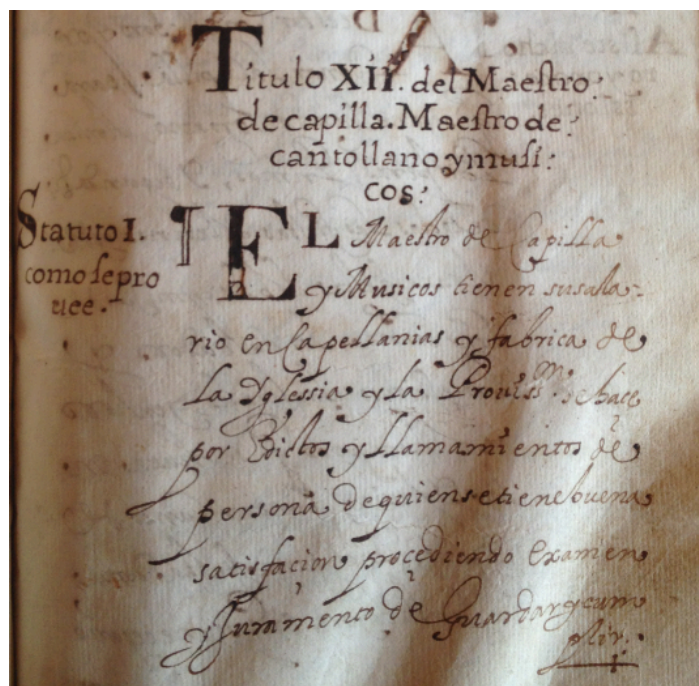 Titulo XII. del Maestro
de capilla. Maestro de
cantollano y musi
cos:
Statuto I.
como se pro
uee.
¶ EL Maestro de Capilla
y Musicos tienen su sala
rio en Capellanias y fabrica de
la Yglessia y la Prouissᵒⁿ. se hace
por Edictos y llamamientos de
persona de quien se tiene buena
satisfaçion procediendo examen
y Juramento de Guardar y cum
plir.